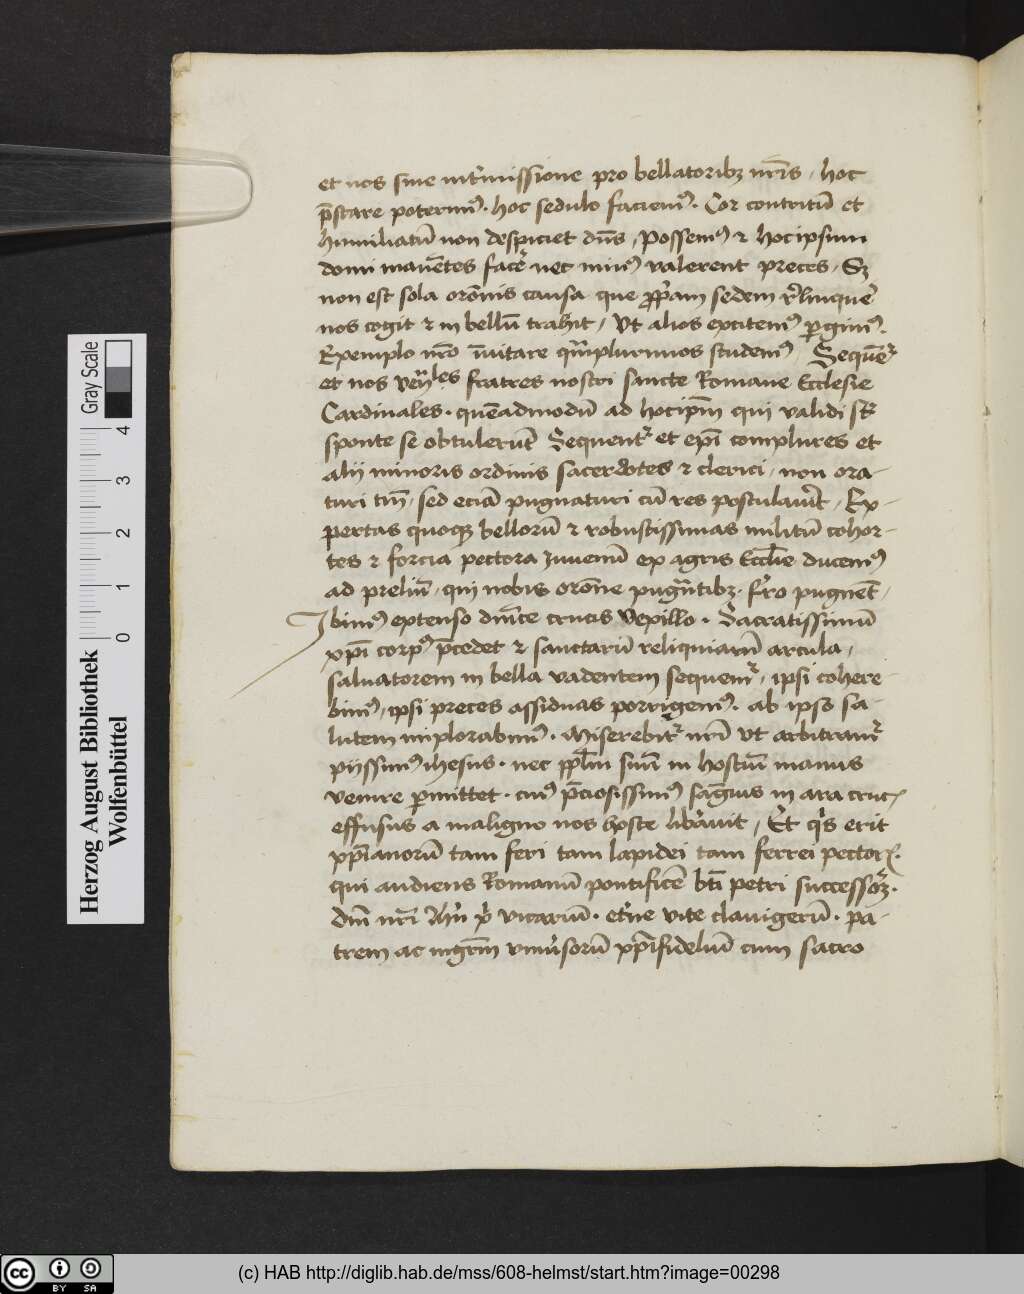 et nos sine int'missione pro bellatoribꝫ nr̄is / hoc
p̄stare poterimꝰ · hoc sedulo faciemꝰ · Cor contritū et
humiliatū non despiciet dn̄s / Possemꝰ ⁊ hoc ipsum
domi manētes facer̄ nec minꝰ valerent preces / Sꝫ
non est sola orōnis causa que ꝓp̄am sedem r̄linquē
nos cogit ⁊ in bellū trahit / Vt alios excitemꝰ ꝑgimꝰ ·
Exemplo nr̄o īuitare qm̄plurimos studemꝰ Sequēr
et nos ven̄les fratres nostri sancte Romane Ecclesie
Cardinales · quēadmodū ad hoc ip̄m qui validi sūt
sponte se obtulerūt Sequentr̄ et ep̄i complures et
alij minoris ordinis sacerdotes ⁊ clerici / non ora-
turi tm̄ / sed eciā pugnaturi cū res postulauīt / Ex-
pertas quoqꝫ bellorū ⁊ robustissimas militū cohor-
tes ⁊ forcia pectora Juuenū ex agris Eccl̄ie ducemꝰ
ad preliū / qui nobis orōne pugn̄tibꝫ · f'ro pugnēt /
Ibimꝰ extenso dn̄ice crucis Vexillo · Sacratissimū
xp̄i corpꝰ p̄cedet ⁊ sanctarū reliquiarū arcula /
saluatorem in bella vadentem sequemr̄ / ipsi cohere-
bimꝰ / ipsi preces assiduas porrigemꝰ · ab ipso sa-
lutem implorabimꝰ · Miserebitr̄ nr̄i vt arbitramr̄
pijssimꝰ ihesus · nec ppl̄m suū in hostiū manus
venire ꝑmittet · cuiꝰ p̄ciosissimꝰ sāguis in ara crucꝭ
effusus a maligno nos hoste lib'auit / Et q's erit
xp̄ianorū tam feri tam lapidei tam ferrei pectorꝭ ·
qui audiens Romanū pontificē bt̄i petri successoꝝ ·
dn̄i nr̄i Ihū xp̄i vicariū · et'ne vite clauigerū · pa-
trem ac mgr̄m vniu'sorū xp̄ifideliū cum sacro
Gray Scale
4
3
2
1
0
Herzog August Bibliothek
Wolfenbüttel
cc BY SA
(c) HAB http://diglib.hab.de/mss/608-helmst/start.htm?image=00298